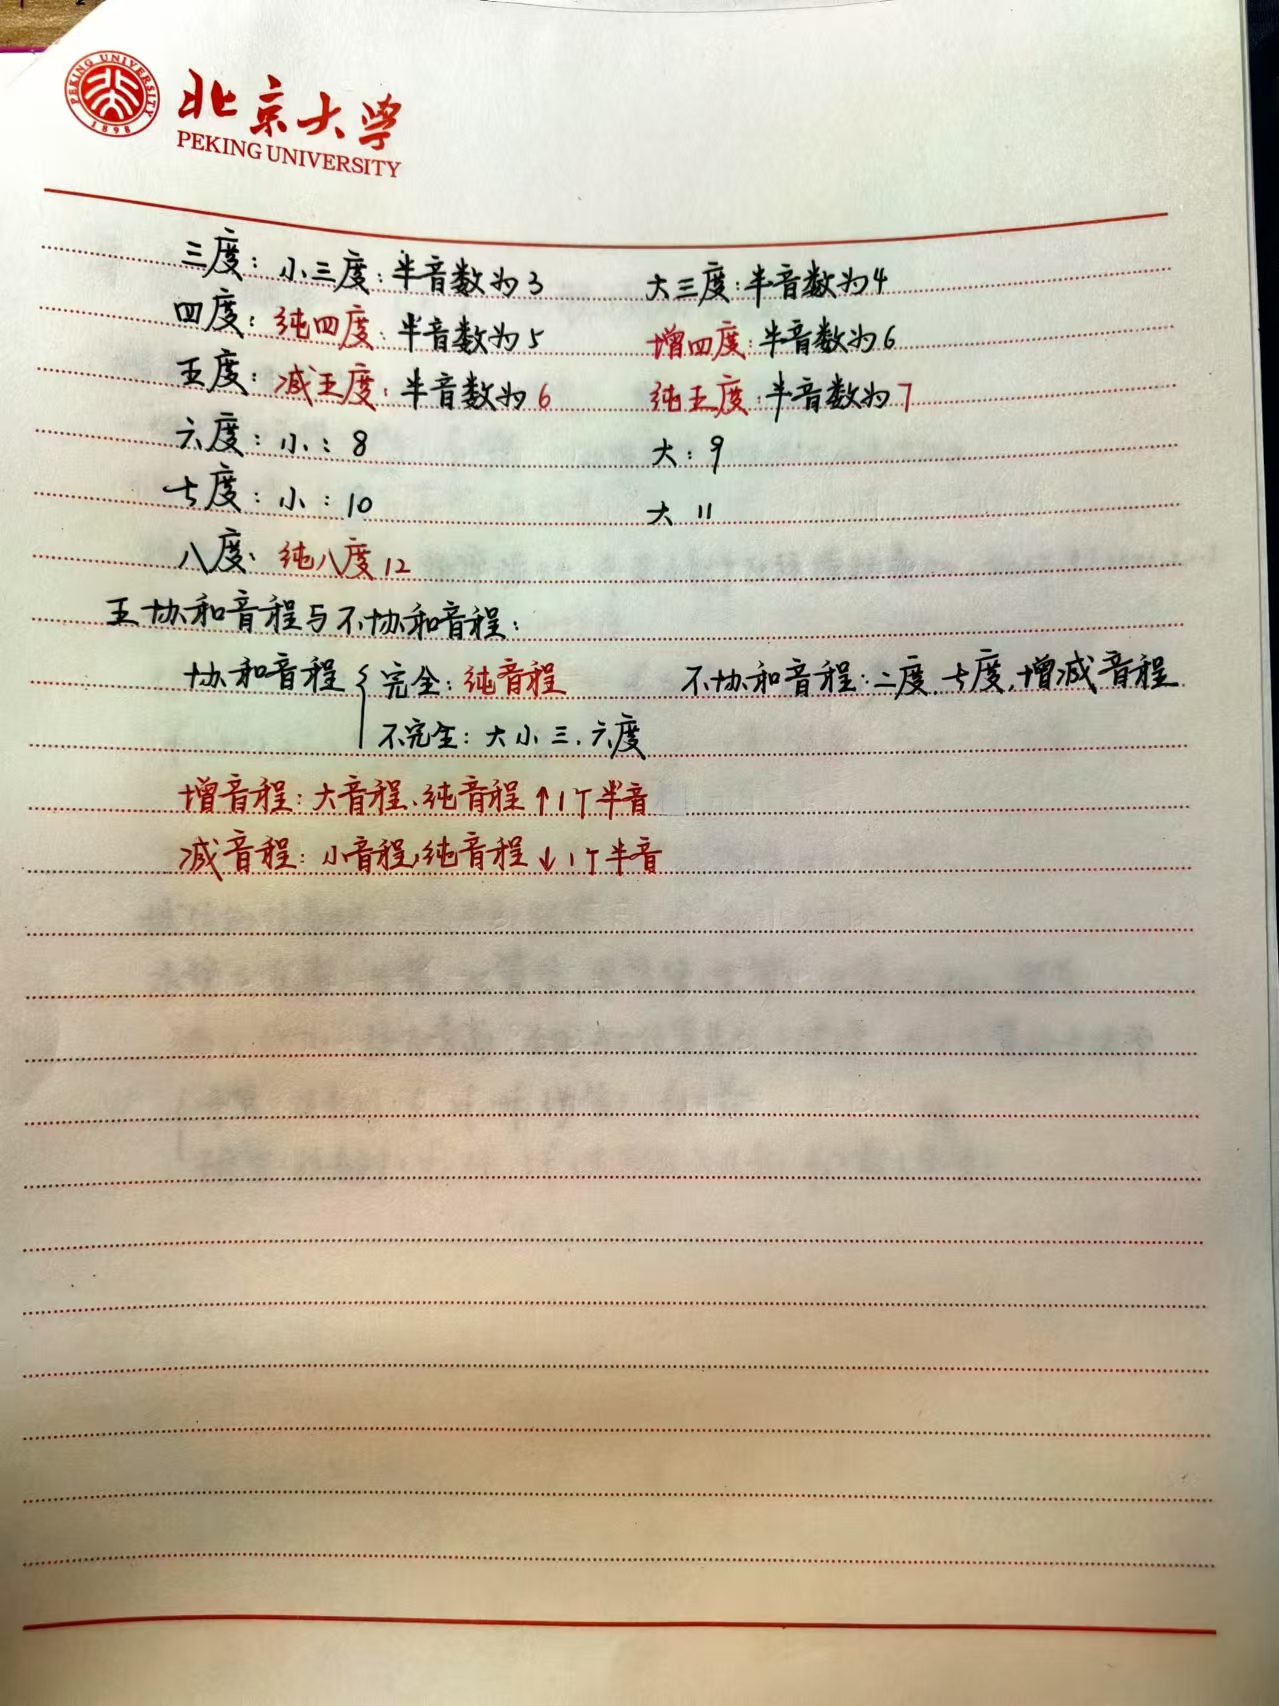 PEKING UNIVERSITY
1898
北京大学
PEKING UNIVERSITY
三度：小三度：半音数为3 大三度：半音数为4
四度：纯四度：半音数为5 增四度：半音数为6
五度：减五度：半音数为6 纯五度：半音数为7
六度：小：8 大：9
七度：小：10 大 11
八度：纯八度12
五.协和音程与不协和音程：
协和音程{完全：纯音程 不协和音程：二度、七度，增减音程
不完全：大小三、六度
增音程：大音程、纯音程↑1个半音
减音程：小音程，纯音程↓1个半音